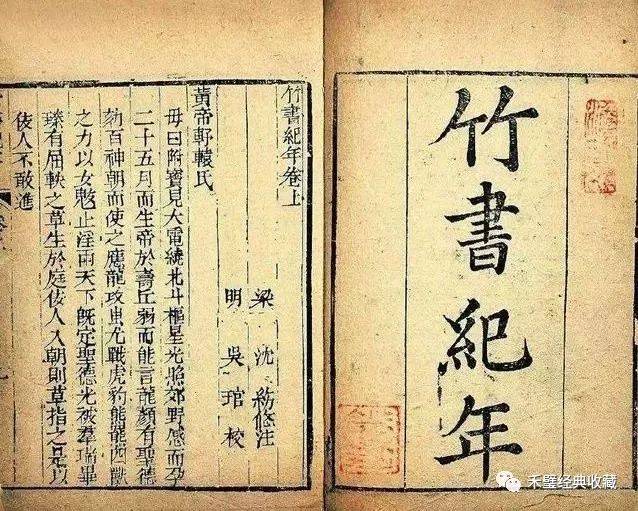 竹書紀年
竹書紀年卷上
梁 沈約 注
明 吳琯校
黃帝軒轅氏
母曰附寶見大電繞北斗樞星光照郊野感而孕
二十五月而生帝於壽丘弱而能言龍顏有聖德
劾百神朝而使之應龍攻蚩尤戰虎豹熊羆四獸
之力以女魃止淫雨天下既定聖德光被羣瑞畢
臻有屈軼之草生於庭佞人入朝則草指之是以
佞人不敢進
禾璧经典收藏